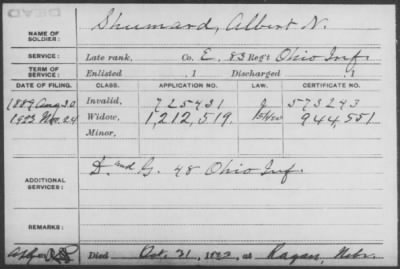 DEAD
NAME OF SOLDIER: Shumard, Albert N.
SERVICE: Late rank, Co. E, 83 Reg't Ohio Inf.
TERM OF SERVICE: Enlisted , 1 Discharged , 1
DATE OF FILING. CLASS. APPLICATION NO. LAW. CERTIFICATE NO.
1889 Aug 30 Invalid, 725431 573293
1922 Nov. 24 Widow, 1,212,519. 944,551
Minor,
ADDITIONAL SERVICES: D. and G. 48 Ohio Inf.
REMARKS:
Died Oct. 21, 1922, at Ragan, Nebr.